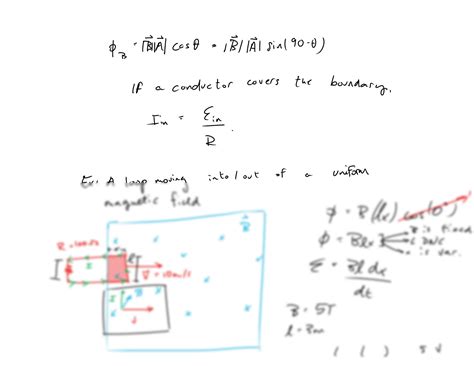 ϕ_B = |B⃗||A⃗| cosθ = |B⃗||A⃗| sin(90-θ)
If a conductor covers the boundary,
I_in = ε_in / R.
Ex: A loop moving into/out of a uniform
magnetic field
B⃗
V = 10m/s
I
ϕ = B(lx) cos(0°)
ϕ = Blx
B is fixed
x is var.
ε = Bl dx / dt
B = 5T
l = 3m